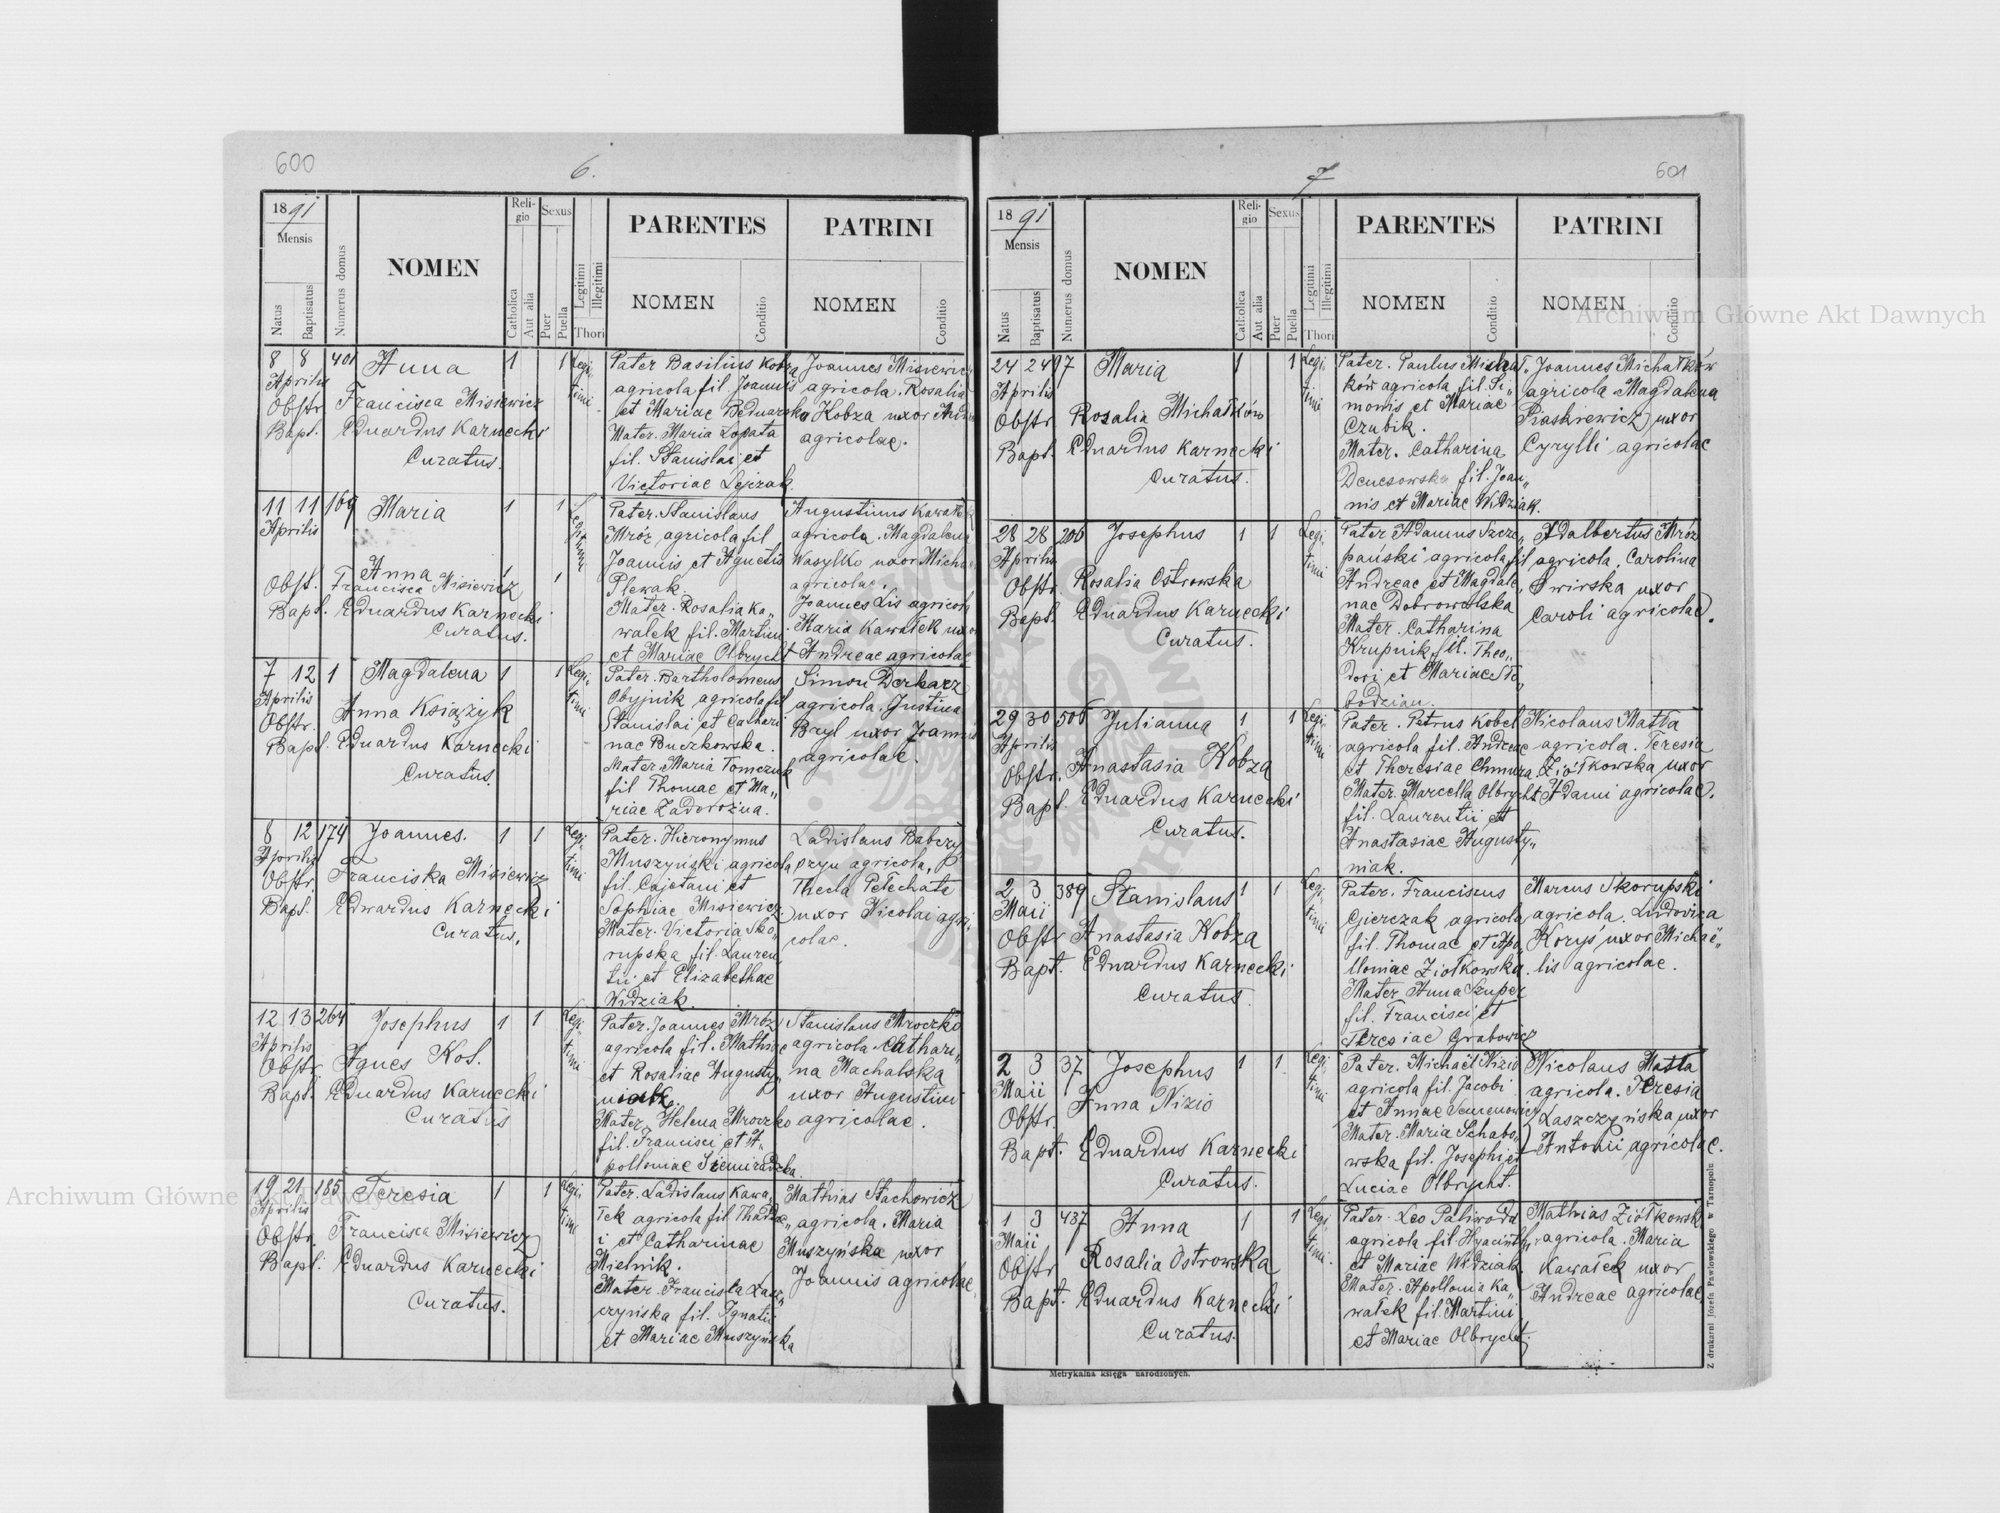 600
6.
1891
Mensis
Natus
Baptisatus
Numerus domus
NOMEN
Religio
Catholica
Aut alia
Sexus
Puer
Puella
Legitimi
Illegitimi
Thori
PARENTES
NOMEN
Conditio
PATRINI
NOMEN
Conditio
8 8 401 Anna 1 1 Legi-
timi
Aprilis
Obstr. Francisca Misiewicz
Bapt. Eduardus Karnecki
Curatus.
Pater Basilius Kobza
agricola fil Joannis
et Mariae Bednarska
Mater. Maria Lopata
fil. Stanislai et
Victoriae Lejczak.
Joannes Misiewicz
agricola. Rosalia
Kobza uxor
agricolae.
11 11 169 Maria 1 1 Legitimi
Aprilis
Anna 1
Obst. Francisca Misiewicz
Bapt. Eduardus Karnecki
Curatus.
Pater. Stanislaus
Mróz agricola fil
Joannis et Agnetis
Plewak.
Mater. Rosalia Ka„
wałek fil. Martini
et Mariae Olbrycht
Augustinus Kawałek
agricola. Magdalena
Wasylko uxor
agricolae.
Joannes Lis agricola
Maria Kawałek uxor
Andreae agricolae
7 12 1 Magdalena 1 1 Legi-
timi
Aprilis
Obstr. Anna Książyk
Bapt. Eduardus Karnecki
Curatus.
Pater. Bartholomeus
Obyjnik agricola fil
Stanislai et Cathari
nae Buczkowska.
Mater Maria Tomczuk
fil Thomae et Ma„
riae Zadorożna.
Simon Derkacz
agricola. Justina
Bryl uxor Joannis
agricolae.
8 12 174 Joannes. 1 1 Legi-
timi
Aprilis
Obstr. Franciska Misiewicz
Bapt. Edwardus Karnecki
Curatus.
Pater. Hieronymus
Muszyński agricola
fil. Cajetani et
Sophiae Misiewicz.
Mater. Victoria Sko„
rupska fil. Lauren„
tii et Elizabethae
Widziak.
Ladislaus Babczy
szyn agricola,
Thecla Pełechata
uxor Nicolai agri„
colae.
12 13 264 Josephus 1 1 Legi-
timi
Aprilis
Obstr. Agnes Kot.
Bapt. Eduardus Karnecki
Curatus
Pater. Joannes Mróz
agricola fil. Mathiae
et Rosaliae Augusty„
niak.
Mater. Helena Mroczko
fil. Francisci et A„
polloniae Siemiradzka.
Stanislaus Mroczko
agricola Cathari„
na Machalska
uxor Augustini
agricolae.
19 21 185 Teresia 1 1 Legi-
timi
Aprilis
Obstr. Francisca Misiewicz
Bapt. Eduardus Karnecki
Curatus.
Pater. Ladislaus Kawa„
łek agricola fil Thadae„
i et Catharinae
Mielnik.
Mater. Franciska Law„
czyńska fil. Ignatii
et Mariae Muszyńska
Mathias Stachowicz
agricola. Maria
Muszyńska uxor
Joannis agricolae
601
7
1891
Mensis
Natus
Baptisatus
Numerus domus
NOMEN
Religio
Catholica
Aut alia
Sexus
Puer
Puella
Legitimi
Illegitimi
Thori
PARENTES
NOMEN
Conditio
PATRINI
NOMEN
Conditio
24 24 97 Maria 1 1 Legi-
timi
Aprilis
Obstr Rosalia Michałków
Bapt. Eduardus Karnecki
Curatus.
Pater. Paulus Michał„
ków agricola fil. Si„
monis et Mariae
Czubik.
Mater. Catharina
Denesowska fil. Joan„
nis et Mariae Widziak.
Joannes Michałków
agricola Magdalena
Piaskiewicz uxor
Cyrylli agricolae
28 28 206 Josephus 1 1 Legi-
timi
Aprilis
Obstr. Rosalia Ostrowska
Bapt. Eduardus Karnecki
Curatus.
Pater Adamus Szcze„
pański agricola fil
Andreae et Magdale„
nae Dobrowolska
Mater. Catharina
Krupnik fil. Theo„
dori et Mariae Sło„
bodzian.
Adalbertus Mróz
agricola, Carolina
Swirska uxor
Caroli agricolae.
29 30 506 Julianna 1 1 Legi-
timi
Aprilis
Obstr. Anastasia Kobza
Bapt. Eduardus Karnecki
Curatus.
Pater. Petrus Kobel
agricola fil. Andreae
et Theresiae Chmura.
Mater. Marcella Olbrycht
fil. Laurentii et
Anastasiae Augusty„
niak.
Nicolaus Matła
agricola. Teresia
Ziółkowska uxor
Adami agricolae.
2 3 389 Stanislaus 1 1 Legi-
timi
Maii
Obstr Anastasia Kobza
Bapt. Eduardus Karnecki
Curatus.
Pater. Franciscus
Gierczak agricola
fil. Thomae et Apo„
lloniae Ziołkowska.
Mater Anna Szuper
fil. Francisci et
Teresiae Grabowicz
Marcus Skorupski
agricola. Ludovica
Koryś uxor Michaë„
lis agricolae.
2 3 37 Josephus 1 1 Legi-
timi
Maii
Obstr. Anna Nizio
Bapt. Eduardus Karnecki
Curatus.
Pater. Michaël Nizio
agricola fil. Jacobi
et Annae Semenowicz
Mater. Maria Schabo„
wska fil. Josephi et
Luciae Olbrycht.
Nicolaus Matła
agricola. Teresia
Laszczyńska uxor
Antonii agricolae.
1 3 437 Anna 1 1 Legi-
timi.
Maii
Obstr Rosalia Ostrowska
Bapt. Eduardus Karnecki
Curatus.
Pater. Leo Paliwoda
agricola fil. Hyacinthi
et Mariae Widziak
Mater. Apollonia Ka„
wałek fil. Martini
et Mariae Olbrycht.
Mathias Ziółkowski
agricola. Maria
Kawałek uxor
Andreae agricolae.
Metrykalna księga narodzonych.
Z drukarni Józefa Pawłowskiego w Tarnopolu
Archiwum Główne Akt Dawnych
Archiwum Główne Akt Dawnych